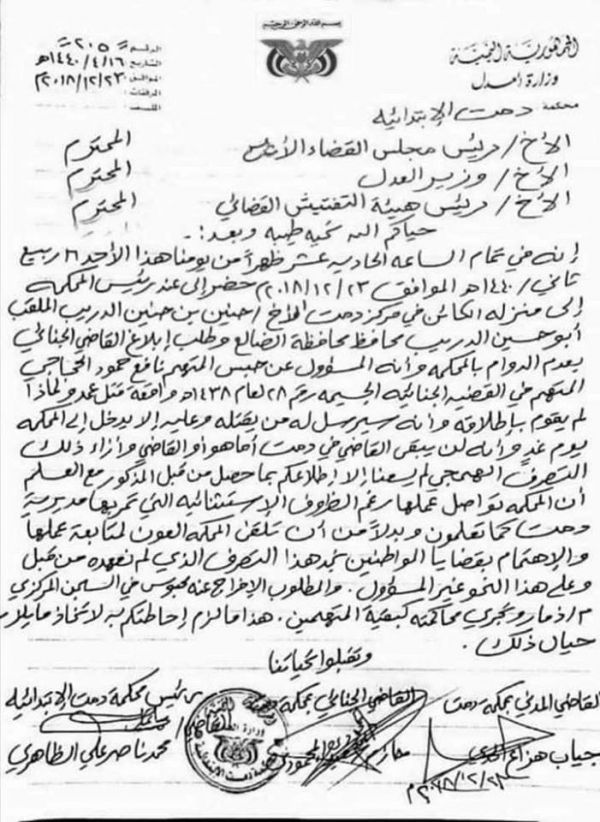 بسم الله الرحمن الرحيم
الجمهورية اليمنية
وزارة العدل
محكمة: دمت الإبتدائيه
الرقم: = ٢٠٥ =
التاريخ: ١٤٤٠/٤/١٦هـ
الموافق: ٢٠١٨/١٢/٢٣م
المرفقات:
الأخ / رئيس مجلس القضاء الأعلى المحترم
الأخ / وزير العدل المحترم
الأخ / رئيس هيئة التفتيش القضائي المحترم
حياكم الله تحيه طيبه وبعد:-
إنه في تمام الساعه الحاديه عشر ظهراً من يومنا هذا الأحد ١٦ ربيع
ثاني/١٤٤٠هـ الموافق ٢٠١٨/١٢/٢٣م حضر إلى عند رئيس المحكمة
إلى منزله الكائن في مركز دمت الأخ / حنين بن حنين الدريب الملقب
أبو حسين الدريب محافظ محافظة الضالع وطلب إبلاغ القاضي الجنائي
بعدم الدوام بالمحكمه وأنه المسؤول عن حبس المتهم نافع حمود الحجاجي
المتهم في القضيه الجنائيه الجسيمه رقم ٢٨ لعام ١٤٣٨هـ واقعة قتل عمد ولماذا
لم يقوم بإطلاقه وأنه سيرسل له من يقتله وعليه إلا يدخل إلى المحكمه
يوم غدٍ وأنه لن يبقى القاضي في دمت أما هو أو القاضي وأزاء ذلك
التصرف الهمجي لم يسعنا إلا إطلاعكم بما حصل من قبل المذكور مع العلم
أن المحكمه تواصل عملها رغم الظروف الإستثنائيه التي تمر بها مديرية
دمت كما تعلمون وبدلاً من أن تلقى المحكمه العون لمتابعة عملها
والإهتمام بقضايا المواطنين نجد هذا التصرف الذي لم نعهده من قبل
وعلى هذا النحو غير المسؤول. والمطلوب الإفراج عنه محبوس في السجن المركزي
م/ذمار وتجري محاكمته كبقية المتهمين. هذا ما لزم إحاطتكم به لاتخاذ ما يلزم
حيال ذلك.
وتقبلوا تحياتنا
القاضي المدني بمحكمة دمت القاضي الجنائي بمحكمة دمت رئيس محكمة دمت الإبتدائيه
القاضي/
محمد ناصر علي الظاهري
٢٠١٨/١٢/٢٣م